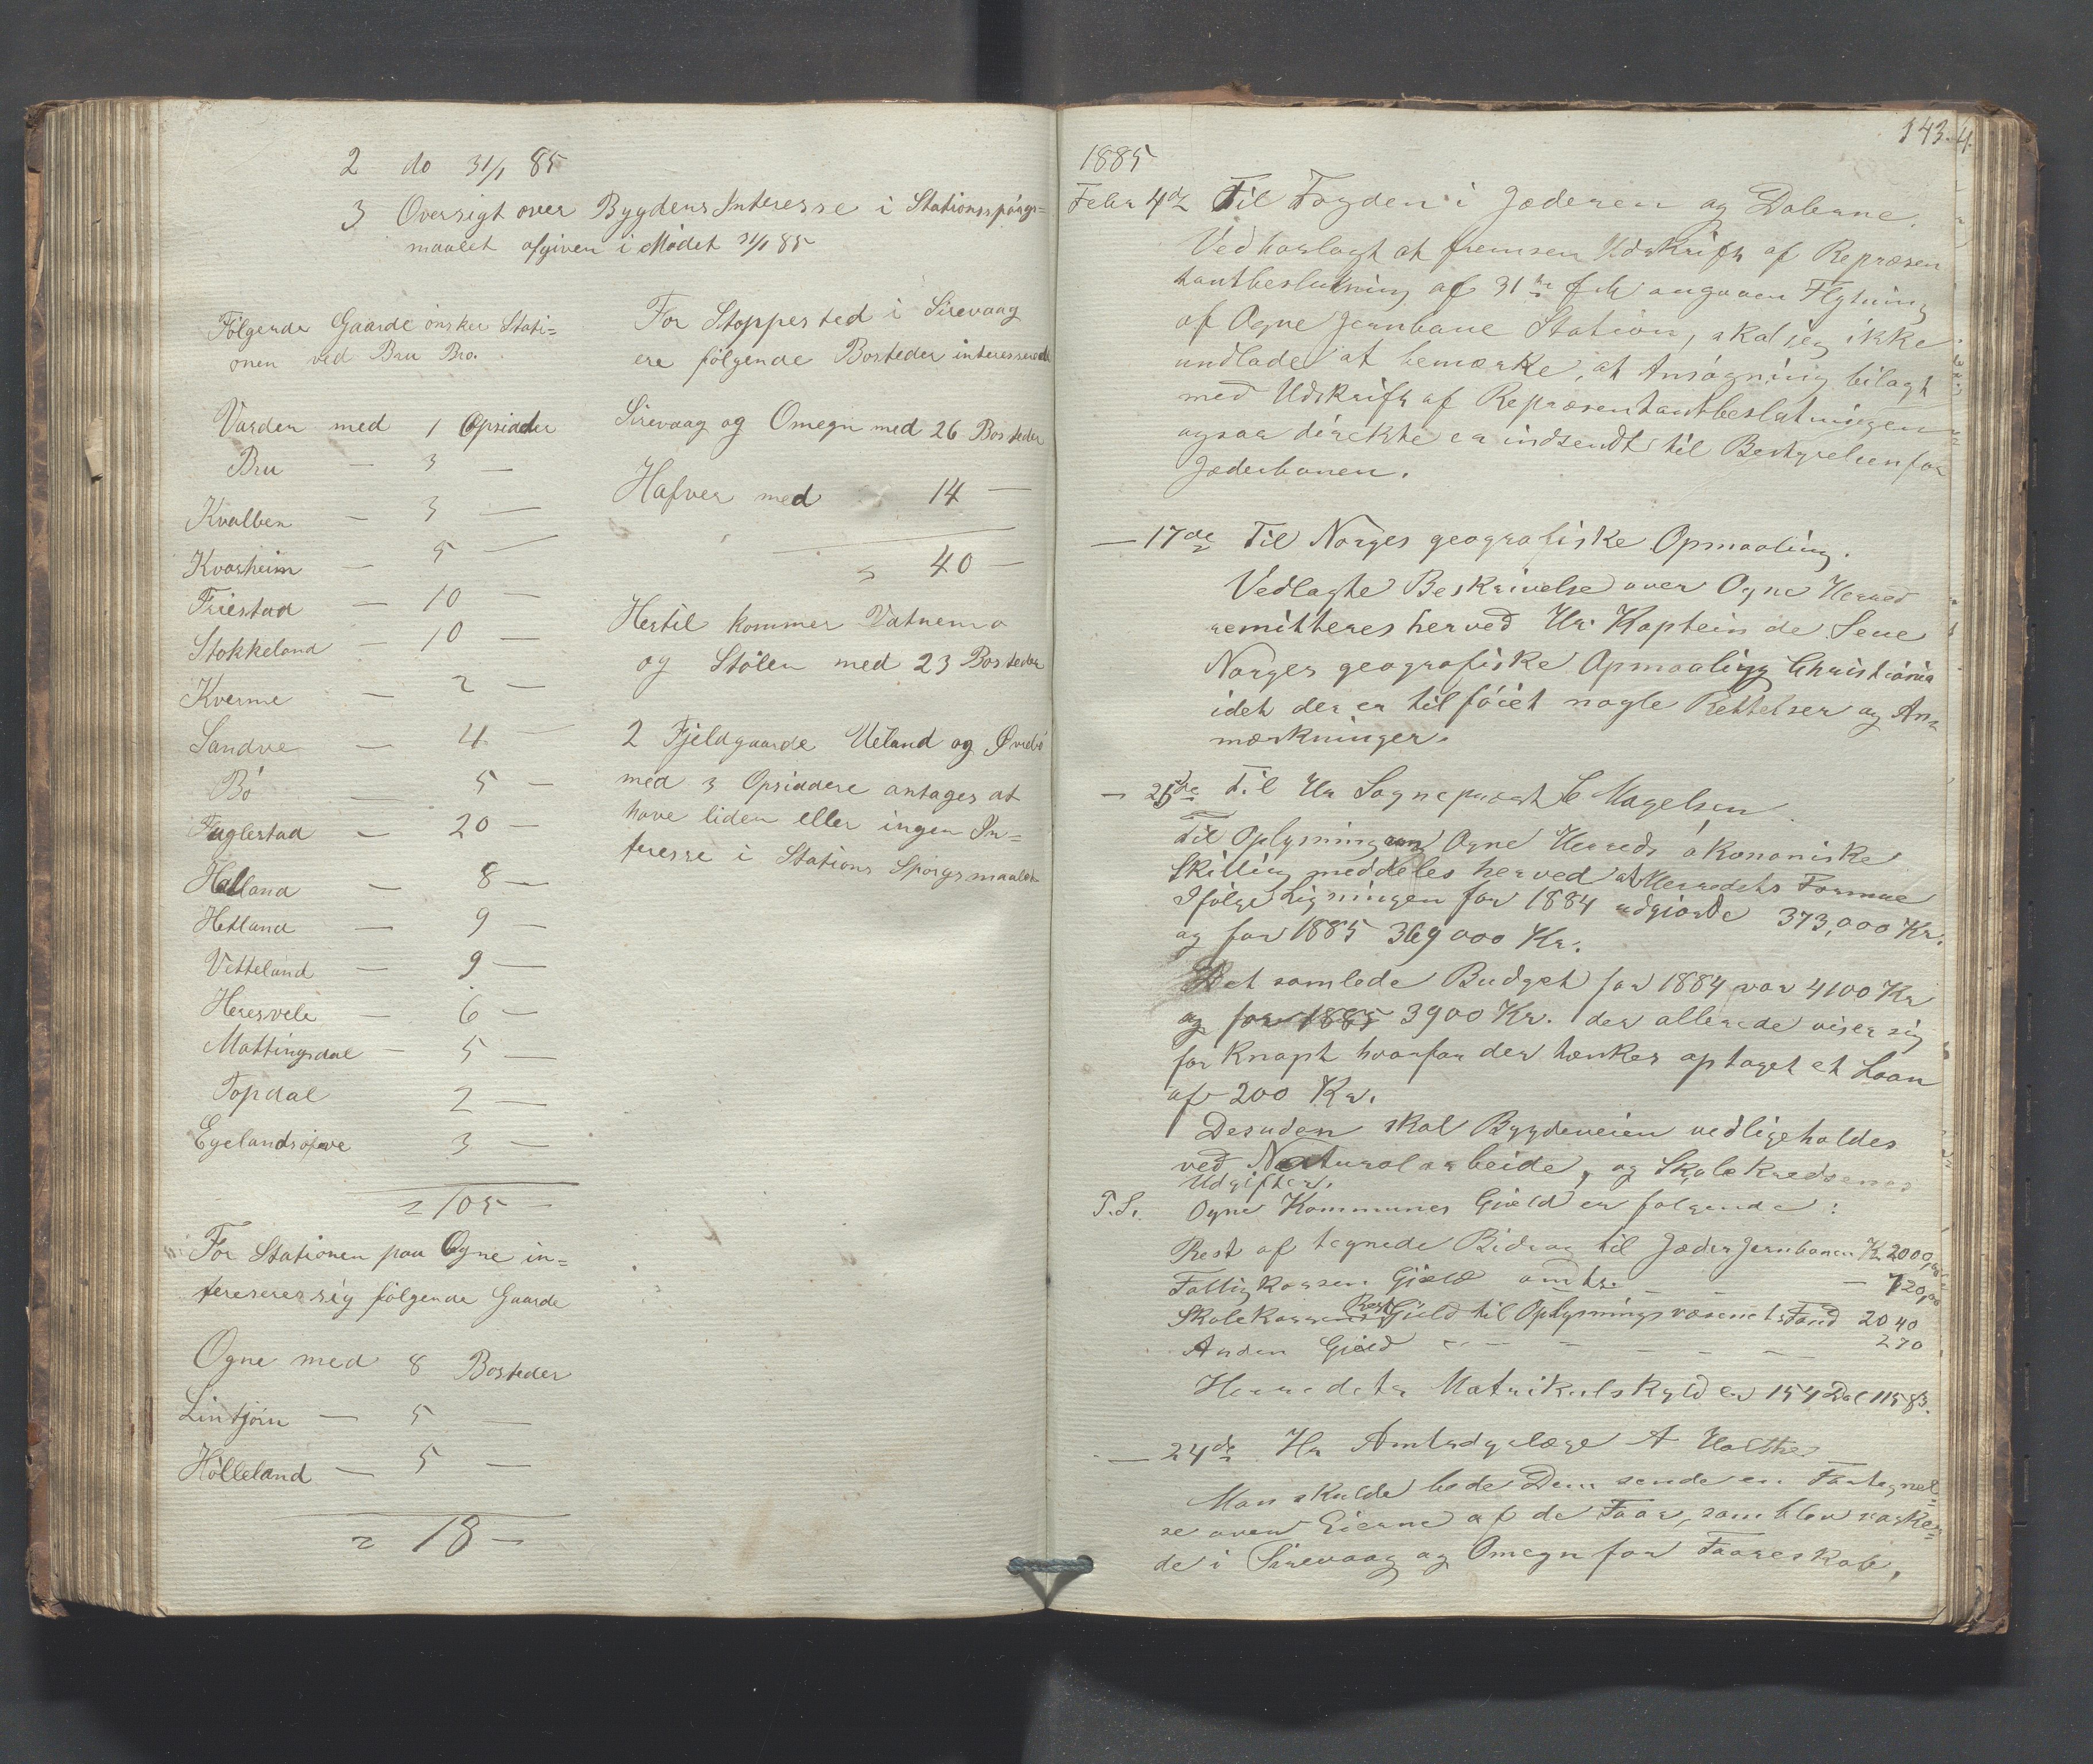 2 do 31/1 85
3 Oversigt over Bygdens Interesse i Stationsspörgs=
maalet afgiven i Mödet 31/1 85
Fölgende Gaarde önsker Stati=
onen ved Bru Bro.
Varden med 1 Opsidder
Bru — 3 —
Kvalben — 3 —
Kvasheim — 5 —
Friestad — 10 —
Stokkeland — 10 —
Kverme — 2 —
Sandve — 4 —
Bö — 5 —
Fuglestad — 20 —
Hatland — 8 —
Hetland — 9 —
Vetteland — 9 —
Heresvele — 6 —
Mattingsdal — 5 —
Topdal 2 —
Egelands 3 —
= 105 —
For Stationen paa Ogne in=
tereserer sig fölgende Gaarde
Ogne med 8 Bosteder
Lintjörn — 5 —
Hölleland — 5 —
= 18 —
For Stoppested i Sirevaag
ere fölgende Bosteder interesserede
Sirevaag og Omegn med 26 Bosteder
Hafver med 14 —
= 40 —
Hertil kommer Vatnemo
og Stölen med 23 Bosteder
2 Fjeldgaarde Ueland og Øvrebö
med 3 Opsiddere antages at
have liden eller ingen In=
teresse i Stations Spörgsmaalet
143. 4.
1885
Febr 4de Til Fogden i Jæderen og Dalerne.
Vedhoslagt at fremsen Udskrift af Repræsen
tantbeslutning af 31te f M angaaen Flytning
af Ogne Jernbane Station, skal jeg ikke
undlade at bemærke, at Ansögning bilagt
med Udskrift af Repræsentantbeslutningen
ogsaa direkte er indsendt til Bestyrelsen for
Jæderbanen.
— 17de Til Norges geografiske Opmaaling.
Vedlagte Beskrivelse over Ogne Herred
remitteres herved Hr. Kaptein de Seue
Norges geografiske Opmaaling Christiania
idet der er tilföiet nogle Rettelser og An=
mærkninger.
— 25de Til Hr Sognepræst C Magelsen.
Til Oplysning om Ogne Herreds ökonomiske
Stilling meddeles herved at Herredets Formue
Ifölge Ligningen for 1884 udgiorde 373,000 Kr.
og for 1885 369000 Kr.
Det samlede Budget for 1884 var 4100 Kr
og for 1885 3900 Kr. der allerede viser sig
for Knapt hvorfor der tænkes optaget et Laan
af 200 Kr.
Desuden skal Bygdeveien vedligeholdes
ved Naturalarbeide, og Skolekredsenes
Udgifter.
T.S. Ogne Kommunes Gjæld er følgende:
Rest af tegnede Bidrag til Jæder Jernbanen Kr 2000,00
Fattigkassen Gjæld omtr. — — — 720,00
Skolekassens Rest Gjæld til Oplysningsvæsenets Fond 2040
Anden Gjæld — — — — — 270
Herredets Matrikulskyld er 154 Dal 115 ß.
— 24de Hr Amtsdyrlæge A Holthe
Man skulde bede Dem sende en Fortegnel=
se over Eierne af de Faar, som blev vaske=
de i Sirevaag og Omegn for Faareskab.